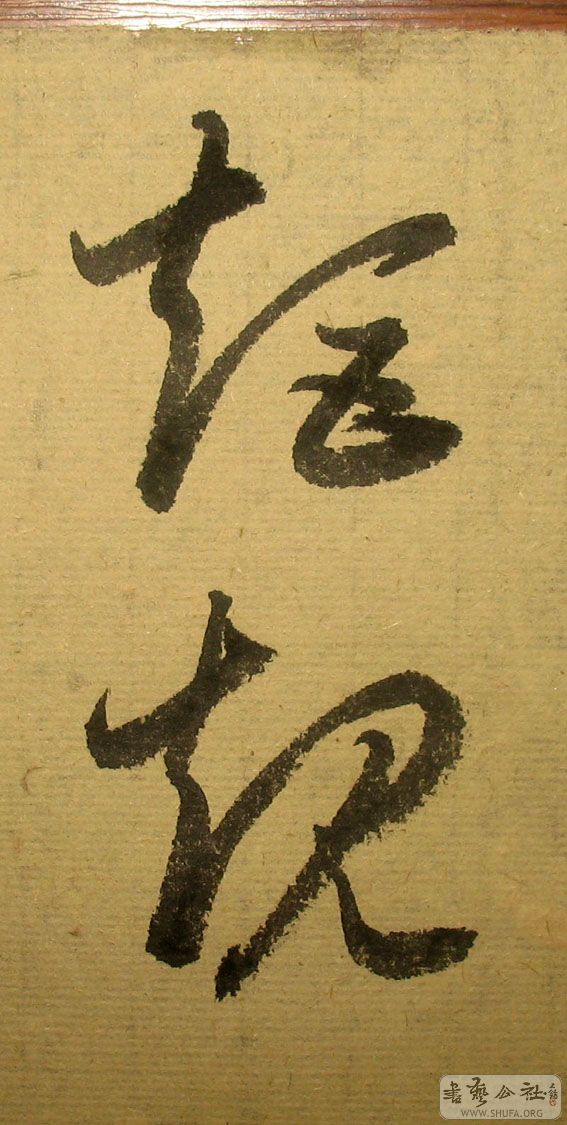 矩規
書藝公社
WWW.SHUFA.ORG